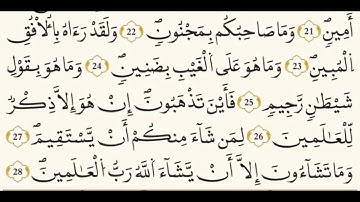 أَمِينٍ ۝21 وَمَا صَاحِبُكُم بِمَجْنُونٍ ۝22 وَلَقَدْ رَءَاهُ بِالْأُفُقِ
الْمُبِينِ ۝23 وَمَا هُوَ عَلَى الْغَيْبِ بِضَنِينٍ ۝24 وَمَا هُوَ بِقَوْلِ
شَيْطَانٍ رَّجِيمٍ ۝25 فَأَيْنَ تَذْهَبُونَ ۝ إِنْ هُوَ إِلَّا ذِكْرٌ
لِّلْعَالَمِينَ ۝26 لِمَن شَاءَ مِنكُمْ أَن يَسْتَقِيمَ ۝27
وَمَا تَشَاءُونَ إِلَّا أَن يَشَاءَ اللَّهُ رَبُّ الْعَالَمِينَ ۝28